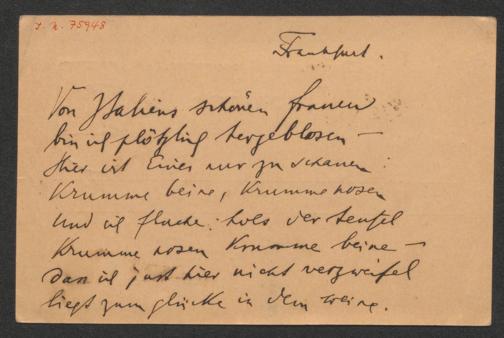 I. N. 75948
Frankfurt.
Von Italiens schönen frauen
bin ich plötzlich hergeblasen –
Hier ist Eines nur zu schauen:
Krumme beine, Krumme nosen
Und ich fluche: hols der teufel
Krumme nosen Krumme beine –
Das ich just hier nicht verzweifel
liegt zum glücke in dem weine.